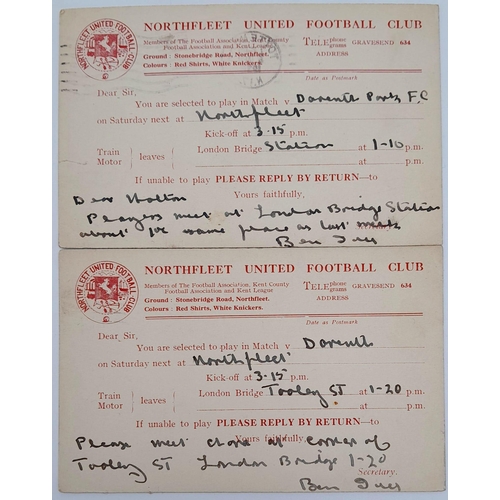 NORTHFLEET UNITED FOOTBALL CLUB
NORTHFLEET UNITED FOOTBALL CLUB
Members of The Football Association, Kent County
Football Association and Kent League
TELEphone grams GRAVESEND 634
ADDRESS
Ground : Stonebridge Road, Northfleet.
Colours : Red Shirts, White Knickers.
Date as Postmark
Dear Sir,
You are selected to play in Match v. Darenth Park F.C
on Saturday next at Northfleet
Kick-off at 3-15 p.m.
Train Motor } leaves { London Bridge Station at 1-10 p.m.
at p.m.
If unable to play PLEASE REPLY BY RETURN—to
Yours faithfully,
Dear
Players meet at London Bridge Station
about 1 same place as last week
Ben
NORTHFLEET UNITED FOOTBALL CLUB
NORTHFLEET UNITED FOOTBALL CLUB
Members of The Football Association, Kent County
Football Association and Kent League
TELEphone grams GRAVESEND 634
ADDRESS
Ground : Stonebridge Road, Northfleet.
Colours : Red Shirts, White Knickers.
Date as Postmark
Dear Sir,
You are selected to play in Match v. Darenth
on Saturday next at Northfleet
Kick-off at 3-15 p.m.
Train Motor } leaves { London Bridge Tooley ST at 1-20 p.m.
at p.m.
If unable to play PLEASE REPLY BY RETURN—to
Yours faithfully,
Please meet at corner of
Tooley ST London Bridge 1-20
Secretary.
Ben